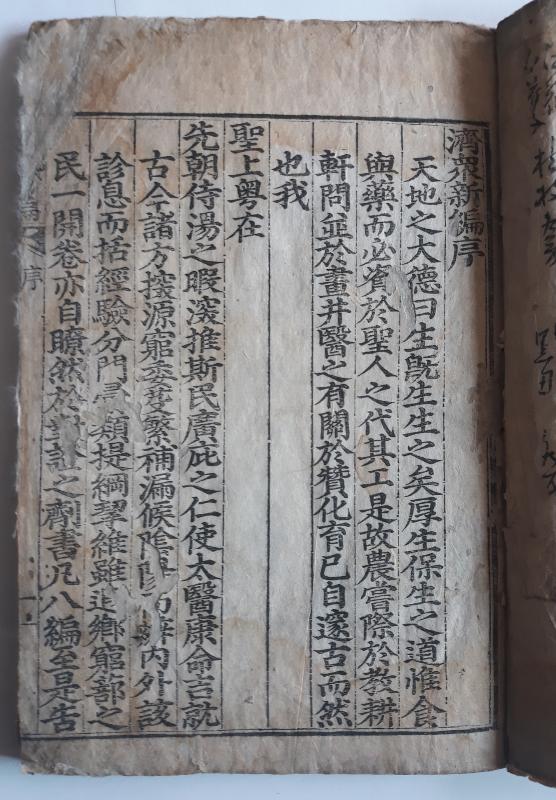 濟衆新編序
天地之大德曰生旣生生之矣厚生保生之道惟食
與藥而必資於聖人之代其工是故農嘗際於敎耕
軒問並於畫井醫之有關於贊化育已自邃古而然
也我
聖上粤在
先朝侍湯之暇深推斯民廣庇之仁使太醫康命吉就
古今諸方探源窮委芟繁補漏候陰內外該
診息而括經驗分門類提綱挈維雖遐鄕窮蔀之
民一開卷亦自瞭然於對證之劑書凡八編至是告
編 序